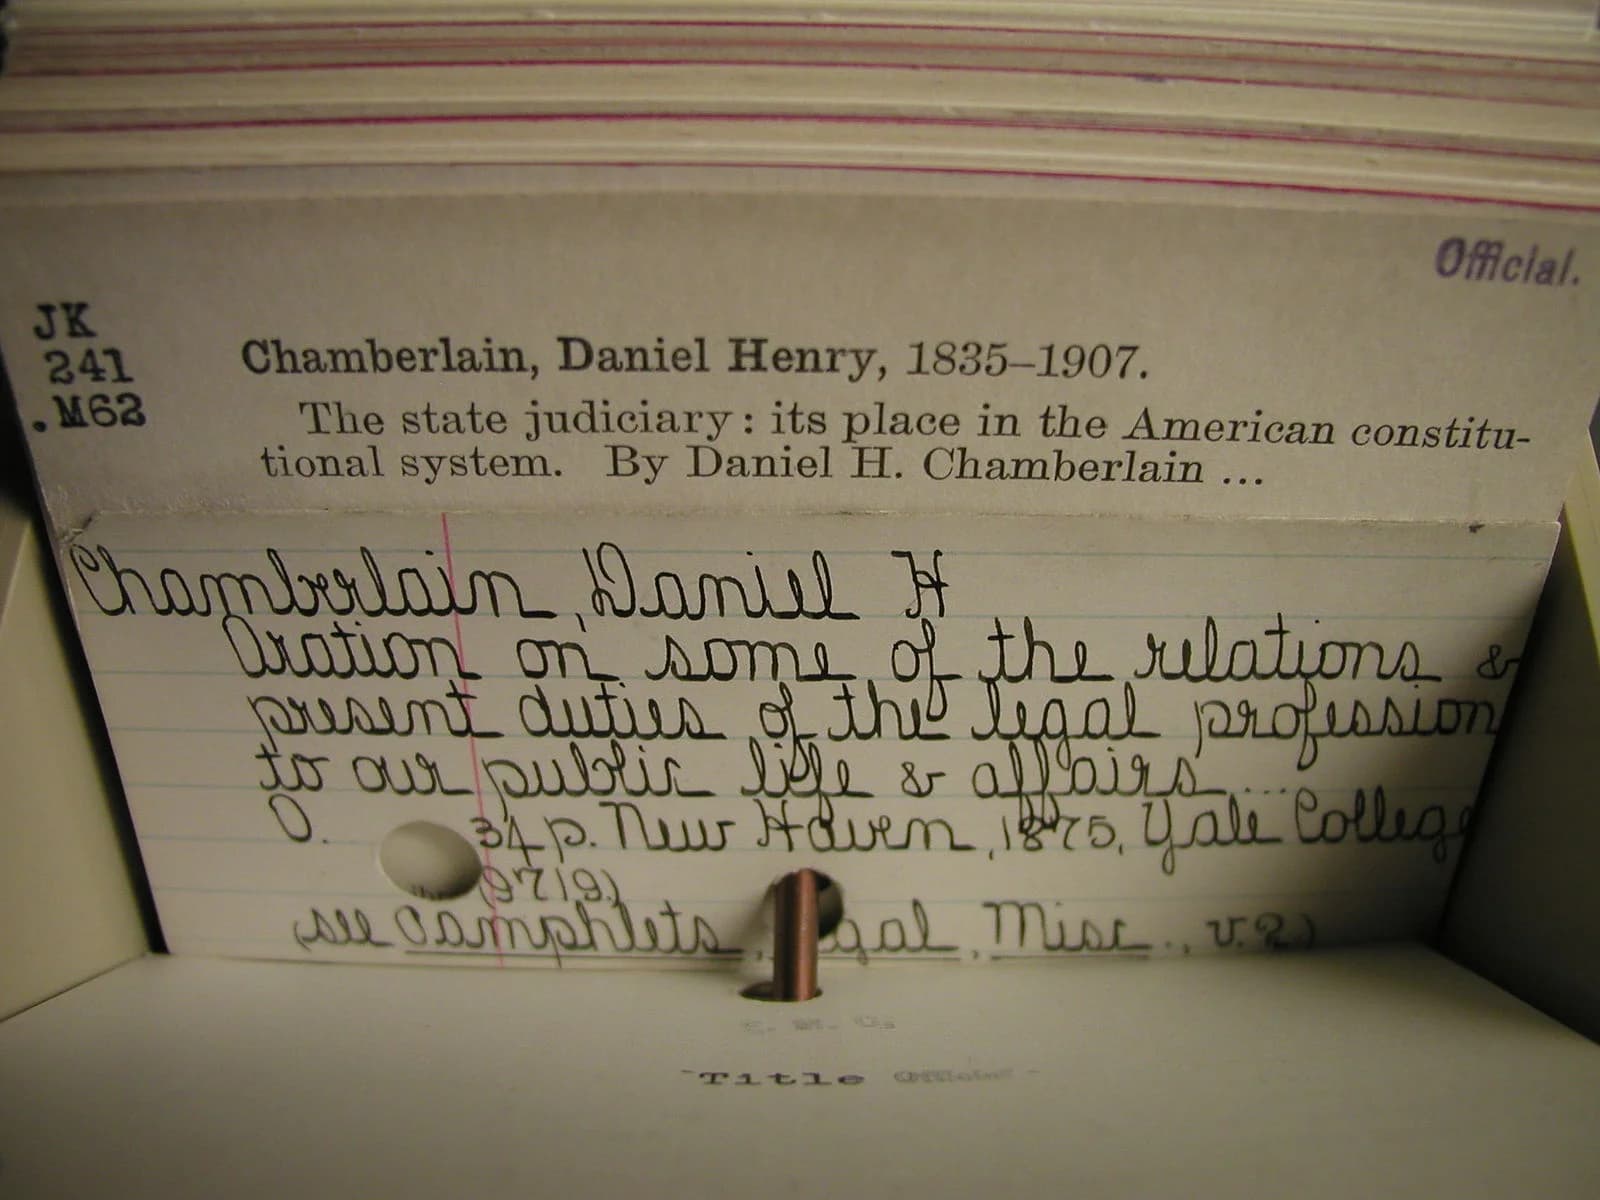 Official.
JK
241
.M62
Chamberlain, Daniel Henry, 1835–1907.
The state judiciary : its place in the American constitu-
tional system. By Daniel H. Chamberlain ...
Chamberlain, Daniel H
Oration on some of the relations &
present duties of the legal profession
to our public life & affairs....
O. 34 p. New Haven, 1875, Yale College
(9719)
(see Pamphlets, gal, Misc., v.2)
Title